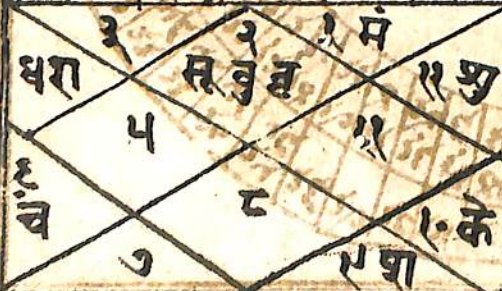 ३ २ १ मं
४रा सू बु बृ १२ शु
५ ११
६ चं ८ १० के
७ ९ श